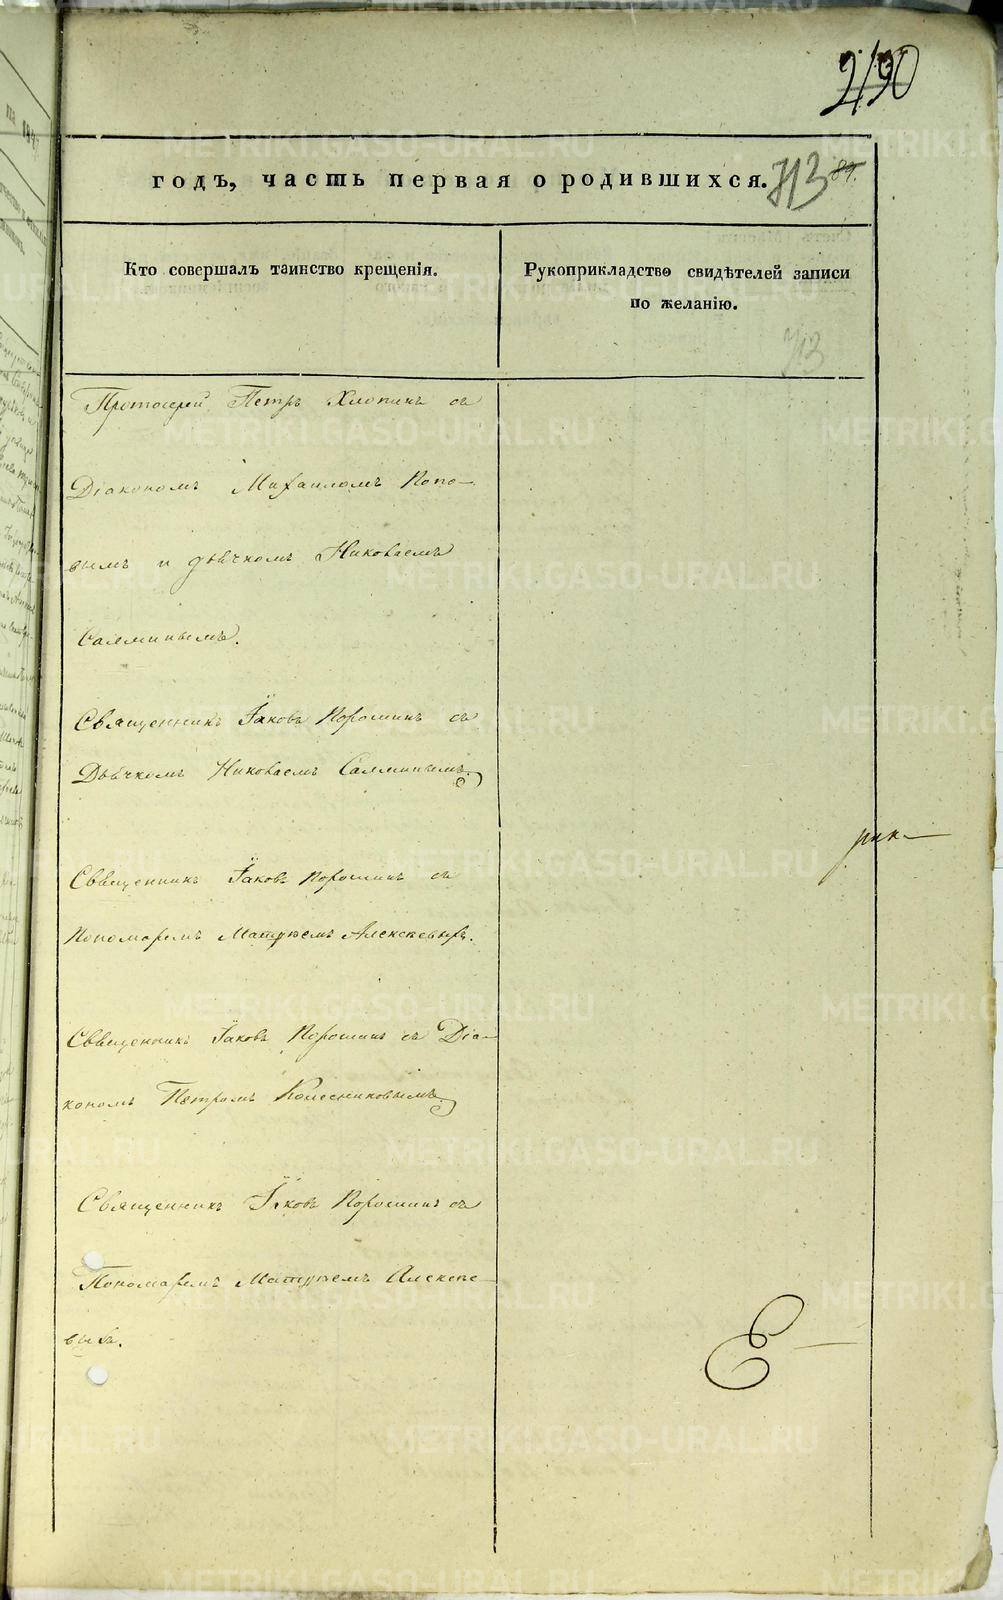 2/90
годъ, часть первая о родившихся.
713
89.
Кто совершалъ таинство крещенія.
Рукоприкладство свидѣтелей записи
по желанію.
713
Протоіерей Петръ Хлопинъ съ
Діакономъ Михаиломъ Попо-
вымъ и дьячкомъ Николаемъ
Саламинымъ.
Священникъ Іаковъ Порошинъ съ
Дьячкомъ Николаемъ Саламинымъ
Священникъ Іаковъ Порошинъ съ
Пономаремъ Матѳеемъ Алексѣевыхъ.
Священникъ Іаковъ Порошинъ съ Діа-
кономъ Петромъ Колесниковымъ
Священникъ Іаковъ Порошинъ съ
Пономаремъ Матѳеемъ Алексѣе-
выхъ.
METRIKI.GASO-URAL.RU